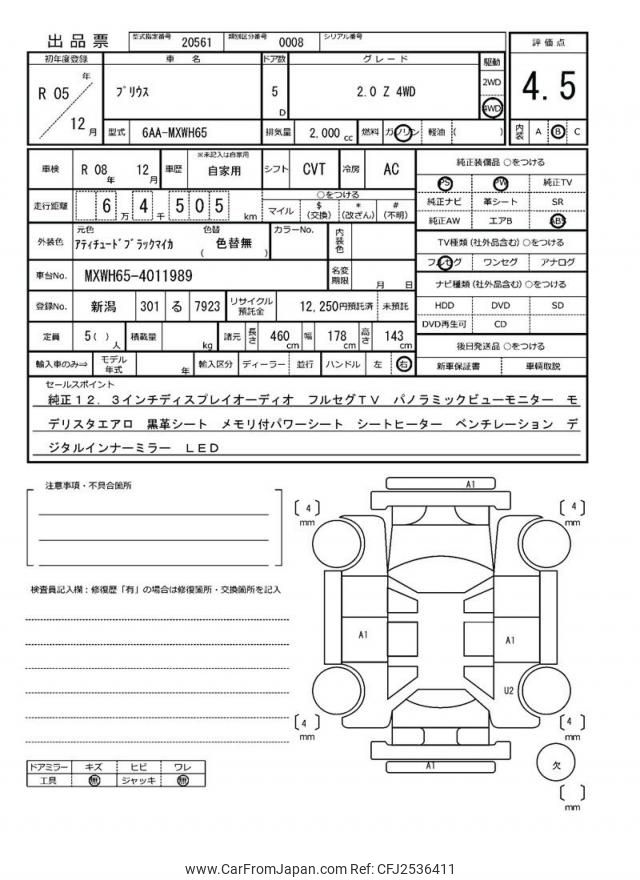 出品票 型式指定番号 20561 類別区分番号 0008 シリアル番号
初年度登録 車名 ドア数 グレード 駆動 評価点
R 05 年 12 月 プリウス 5 D 2.0 Z 4WD 2WD 4WD 4.5
型式 6AA-MXWH65 排気量 2,000 cc 燃料 ガソリン 軽油 ( ) 内装 A B C
車検 R 08 年 12 月 車歴 ※未記入は自家用 自家用 シフト CVT 冷房 AC
純正装備品 ○をつける
PS PW 純正TV
純正ナビ 革シート SR
純正AW エアB ABS
走行距離 6 万 4 千 5 0 5 km
○をつける
マイル $ (交換) * (改ざん) # (不明)
外装色 元色 アティチュードブラックマイカ 色替 ( 色替無 ) カラーNo. 内装色
TV種類 (社外品含む) ○をつける
フルセグ ワンセグ アナログ
車台No. MXWH65-4011989 名変期限 月 日
ナビ種類 (社外品含む) ○をつける
HDD DVD SD
DVD再生可 CD
登録No. 新潟 301 る 7923 リサイクル預託金 12,250円預託済 未預託
定員 5 ( ) 人 積載量 kg 諸元 長さ 460 cm 幅 178 cm 高さ 143 cm
後日発送品 ○をつける
新車保証書 車輌取説
輸入車のみ⇒ モデル年式 年 輸入区分 ディーラー 並行 ハンドル 左 右
セールスポイント
純正12.3インチディスプレイオーディオ フルセグTV パノラミックビューモニター モ
デリスタエアロ 黒革シート メモリ付パワーシート シートヒーター ベンチレーション デ
ジタルインナーミラー LED
注意事項・不具合箇所
検査員記入欄：修復歴「有」の場合は修復箇所・交換箇所を記入
A1
4 mm
4 mm
A1
A1
U2
4 mm
4 mm
A1
欠
mm
ドアミラー キズ ヒビ ワレ
工具 無 ジャッキ 無
www.CarFromJapan.com Ref: CFJ2536411